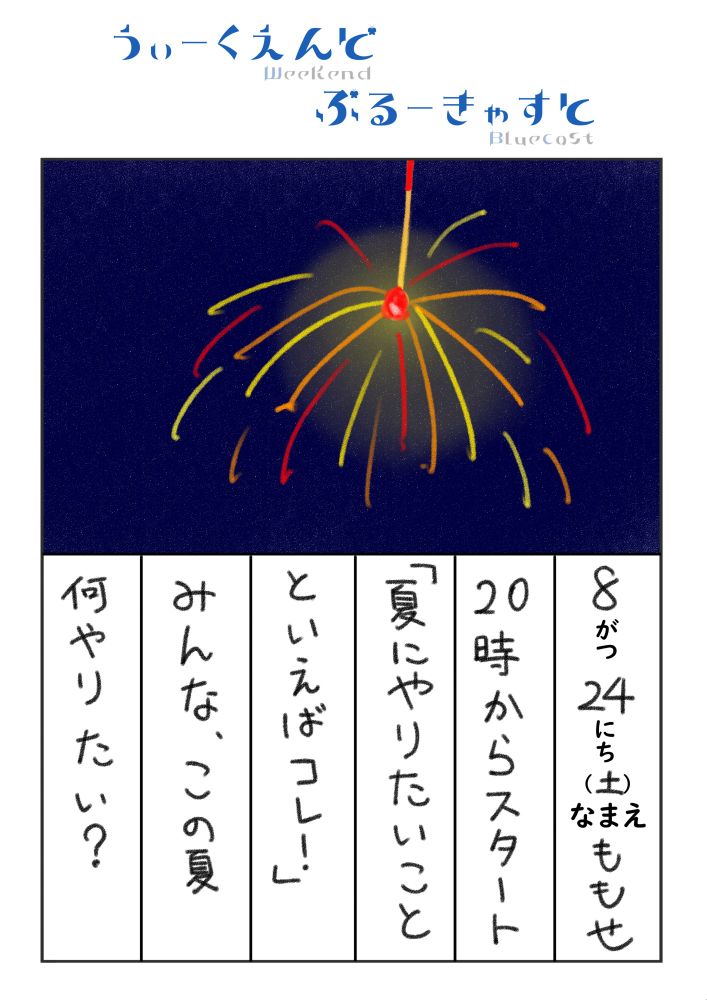 うぃーくえんど
Weekend
ぶるーきゃすと
Bluecast
8がつ24にち(土)なまえももせ
20時からスタート
「夏にやりたいこと
といえばコレ!」
みんな、この夏
何やりたい?